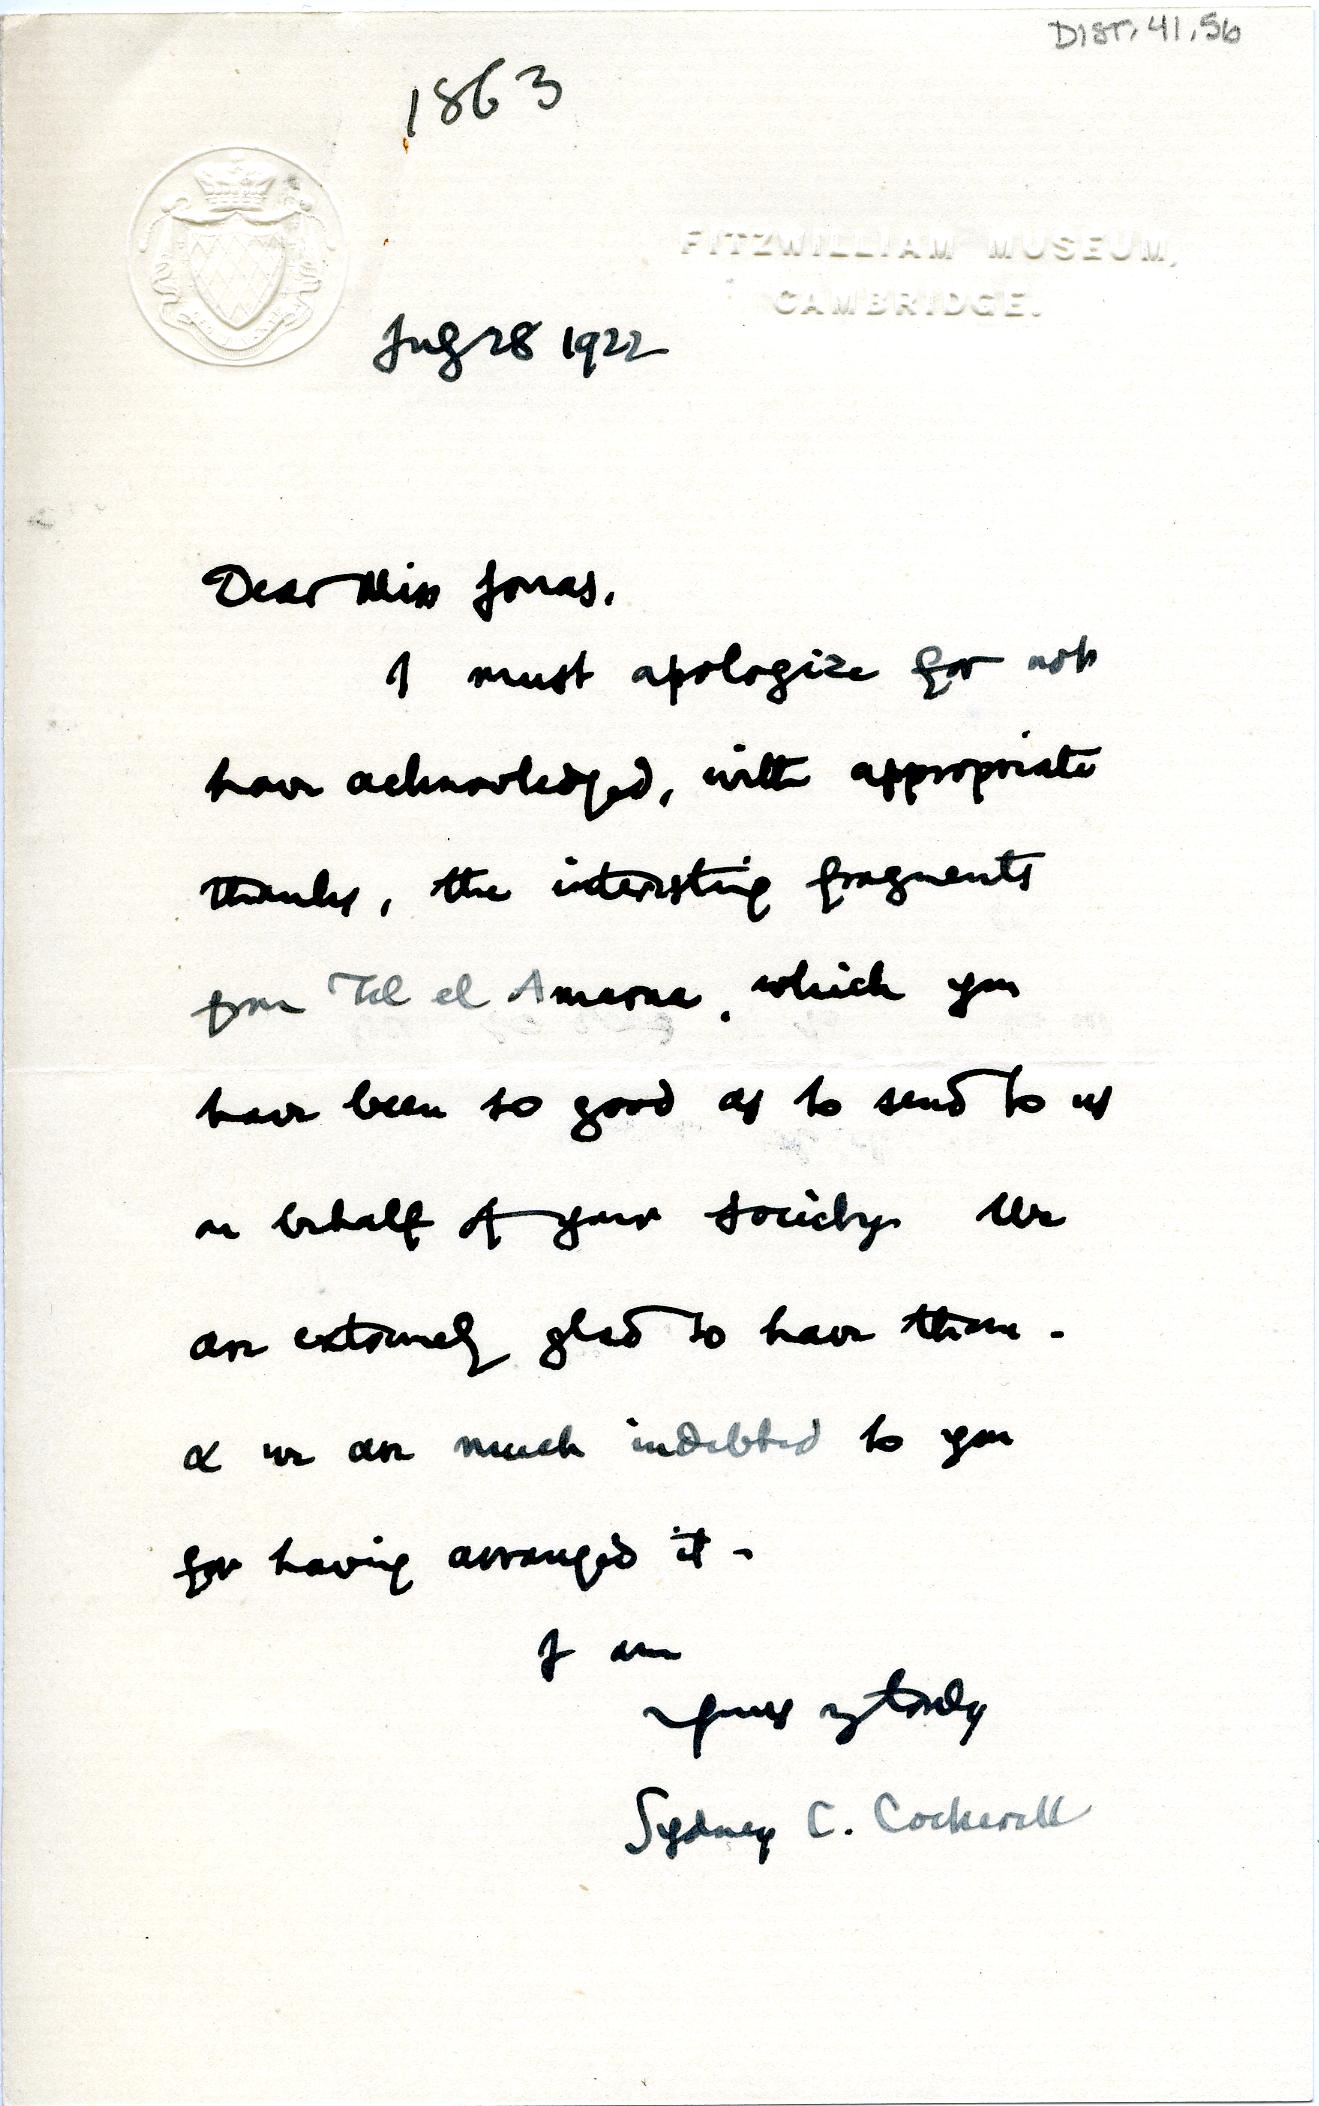 DIST. 41.56
1863
FITZWILLIAM MUSEUM,
CAMBRIDGE.
July 28 1922
Dear Miss Jonas,
I must apologize for not
have acknowledged, with appropriate
thanks, the interesting fragments
from Tel el Amarna, which you
have been so good as to send to us
on behalf of your Society. We
are extremely glad to have them -
& we are much indebted to you
for having arranged it -
I am
Yours truly
Sydney C. Cockerell